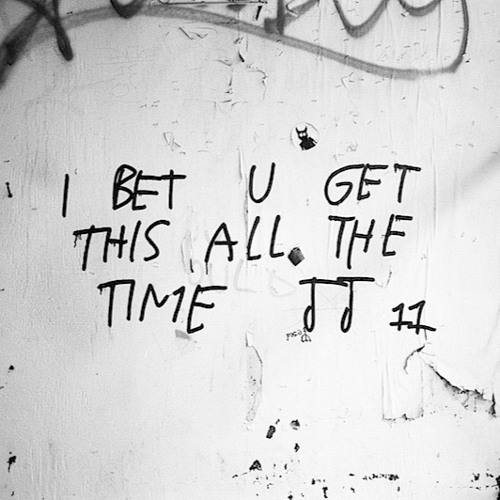 I BET U GET
THIS ALL THE
TIME JJ 11